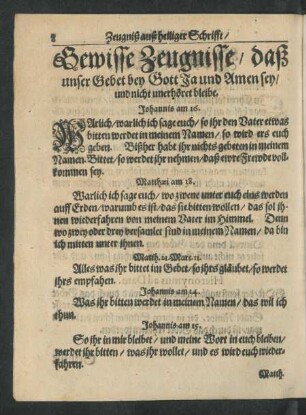 Zeugniß auß heiliger Schrifft/
Gewisse Zeugnisse/ daß
unser Gebet bey Gott Ja und Amen sey/
und nicht unerhöret bleibe.
Johannis am 16.
WArlich/ warlich ich sage euch/ so ihr den Vater etwas
bitten werdet in meinem Namen/ so wird ers euch
geben. Bißher habt ihr nichts gebeten in meinem
Namen. Bittet/ so werdet ihr nehmen/ daß ewre Frewde voll-
kommen sey.
Matthæi am 18.
Warlich ich sage euch/ wo zweene unter euch eins werden
auff Erden/ warumb es ist/ das sie bitten wollen/ das sol ih-
nen wiederfahren von meinem Vater im Himmel. Denn
wo zwey oder drey versamlet sind in meinem Namen/ da bin
ich mitten unter ihnen.
Matth. 21. Marc. 11.
Alles was ihr bittet im Gebet/ so ihrs gläubet/ so werdet
ihrs empfahen.
Johannis am 14.
Was ihr bitten werdet in meinem Namen/ das wil ich
thun.
Johannis am 15.
So ihr in mir bleibet/ und meine Wort in euch bleiben/
werdet ihr bitten/ was ihr wollet/ und es wird euch wieder-
fahren.
Matth.